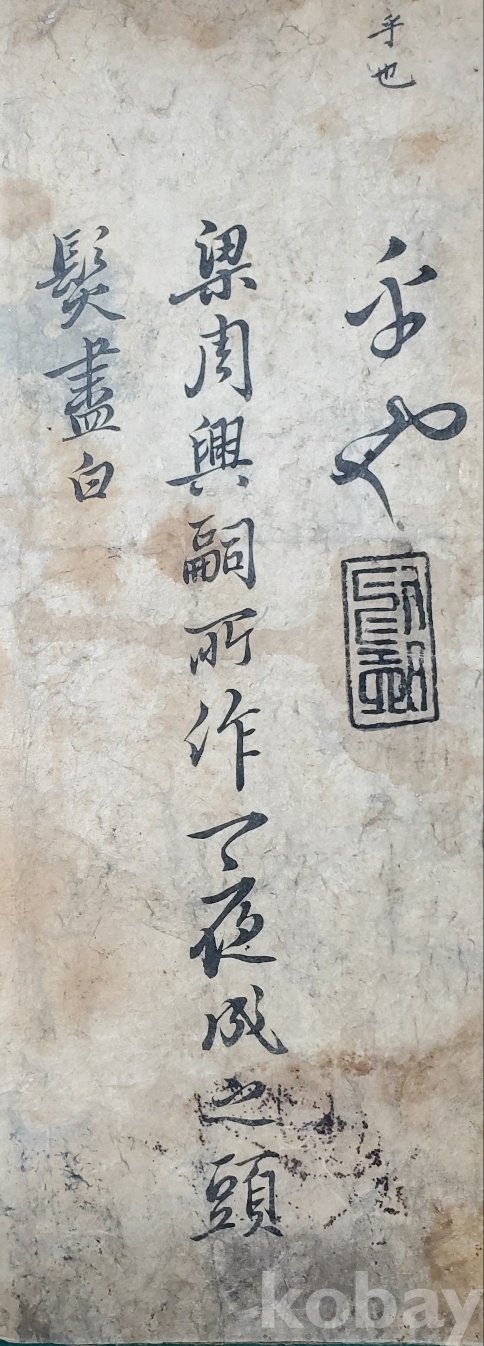 乎也
乎也
梁周興嗣所作一夜成之頭
髮盡白
kobay